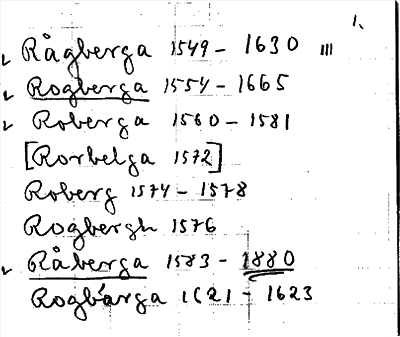 1.
Rågberga 1549 – 1630 III
Rogberga 1554 – 1665
Roberga 1560 – 1581
[Rorbelga 1572]
Roberg 1574 – 1578
Rogbergh 1576
Råberga 1583 – 1880
Rogbärga 1621 – 1623